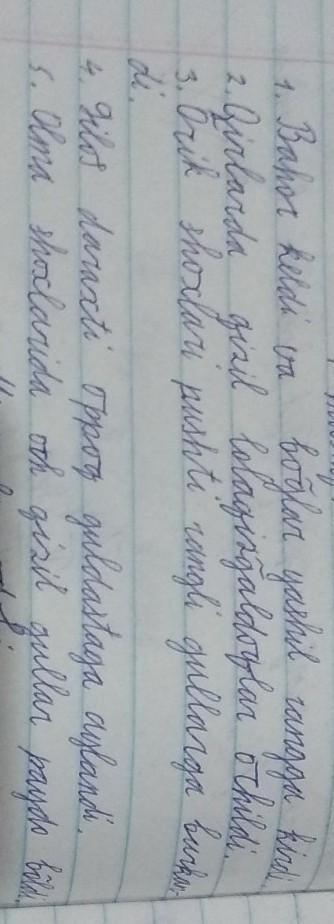 1. Bahor keldi va bog'lar yashil rangga kirdi.
2. Qirlarda qizil lolaqizg'aldoqlar ochildi.
3. O'rik shoxlari pushti rangli gullarga burkan-
di.
4. Gilos daraxti oppoq guldastaga aylandi.
5. Olma shoxlarida och qizil gullar paydo bo'ldi.